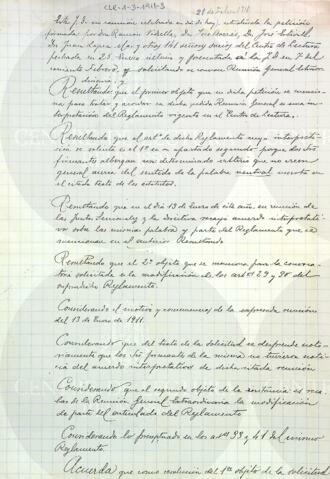 CLE-1-3-1911-3
28 Febrero 1911
Esta J. D. en reunión celebrada en día de hoy, estudiada la petición
firmada por Don Ramón Vidiella, Don José
Don Juan Lopez y otros 161 señores socios del Centro de Lectura
fechada en 25 Enero último y presentada a la J. D. en 7 del
corriente Febrero, y solicitando se convoque Reunión General extraor-
dinaria, y
Resultando que el primer objeto que en dicha petición se mencio-
na para tratar y acordar en dicha pedida Reunión General es una in-
terpretación del Reglamento vigente en el Centro de Lectura.
Resultando que el artº de dicho Reglamento cuya interpreta-
ción se solicita es el 1º en su apartado segundo porque dos
firmantes albergan un determinado criterio que no creen
general acerca del sentido de la palabra neutral inserta en
el citado texto de los estatutos.
Resultando que en el día 13 Enero de este año, en reunión de
las Juntas Seccionales y la Directiva recayó acuerdo interpretati-
vo sobre las mismas palabras y parte del Reglamento que se
mencionan en el anterior Resultando
Resultando que el 2º objeto que se menciona para la convoca-
toria solicitada es la modificación de los artos 29 y 90 del
supradicho Reglamento.
Considerando el motivo y consecuencias de la expresada reunión
del 13 de Enero de 1911.
Considerando que del texto de la solicitud se desprende noto-
riamente que los firmantes de la misma no tuvieron noticia
del acuerdo interpretativo de dicha citada reunión
Considerando que el segundo objeto de la
de la Reunión General Extraordinaria la modificación
de parte del articulado del Reglamento
Considerando lo preceptuado en los artos 33 y 41 del mismo
Reglamento
Acuerda que como resolución del 1er objeto de la solicitud